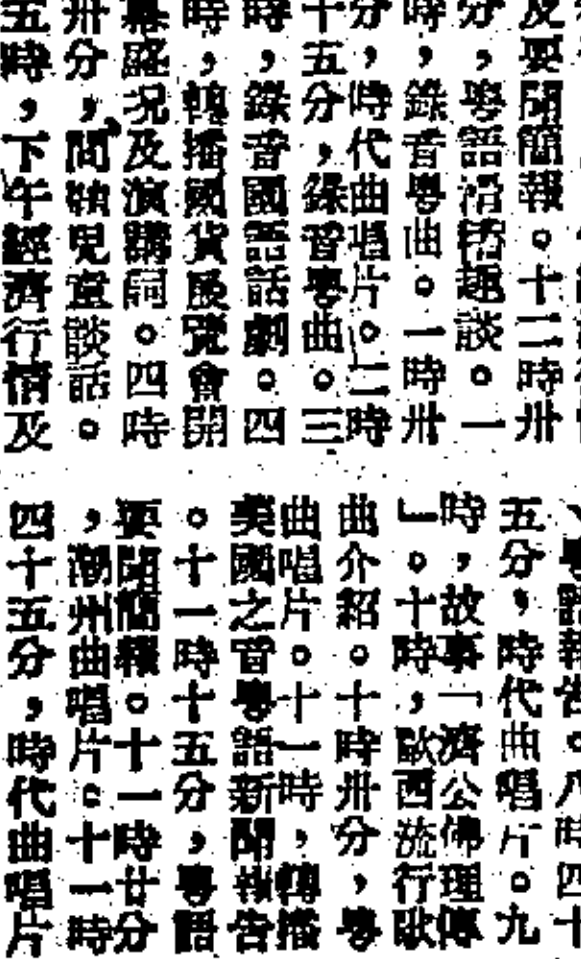 及要聞簡報。十二時卅
分，粵語滑稽趣談。一
時，錄音粵曲。一時卅
分，時代曲唱片。二時
十五分，錄音粵曲。三
時，錄音國語話劇。四
時，轉播國貨展覽會開
幕盛况及演講詞。四時
卅分，問題兒童談話。
五時，下午經濟行情及
、粵語報告。八時四十
五分，時代曲唱片。九
時，故事「濟公佛理傳
」。十時，歐西流行歌
曲介紹。十時卅分，粵
曲唱片。十一時，轉播
美國之音粵語新聞報告
。十一時十五分，粵語
要聞簡報。十一時廿分
，潮州曲唱片。十一時
四十五分，時代曲唱片